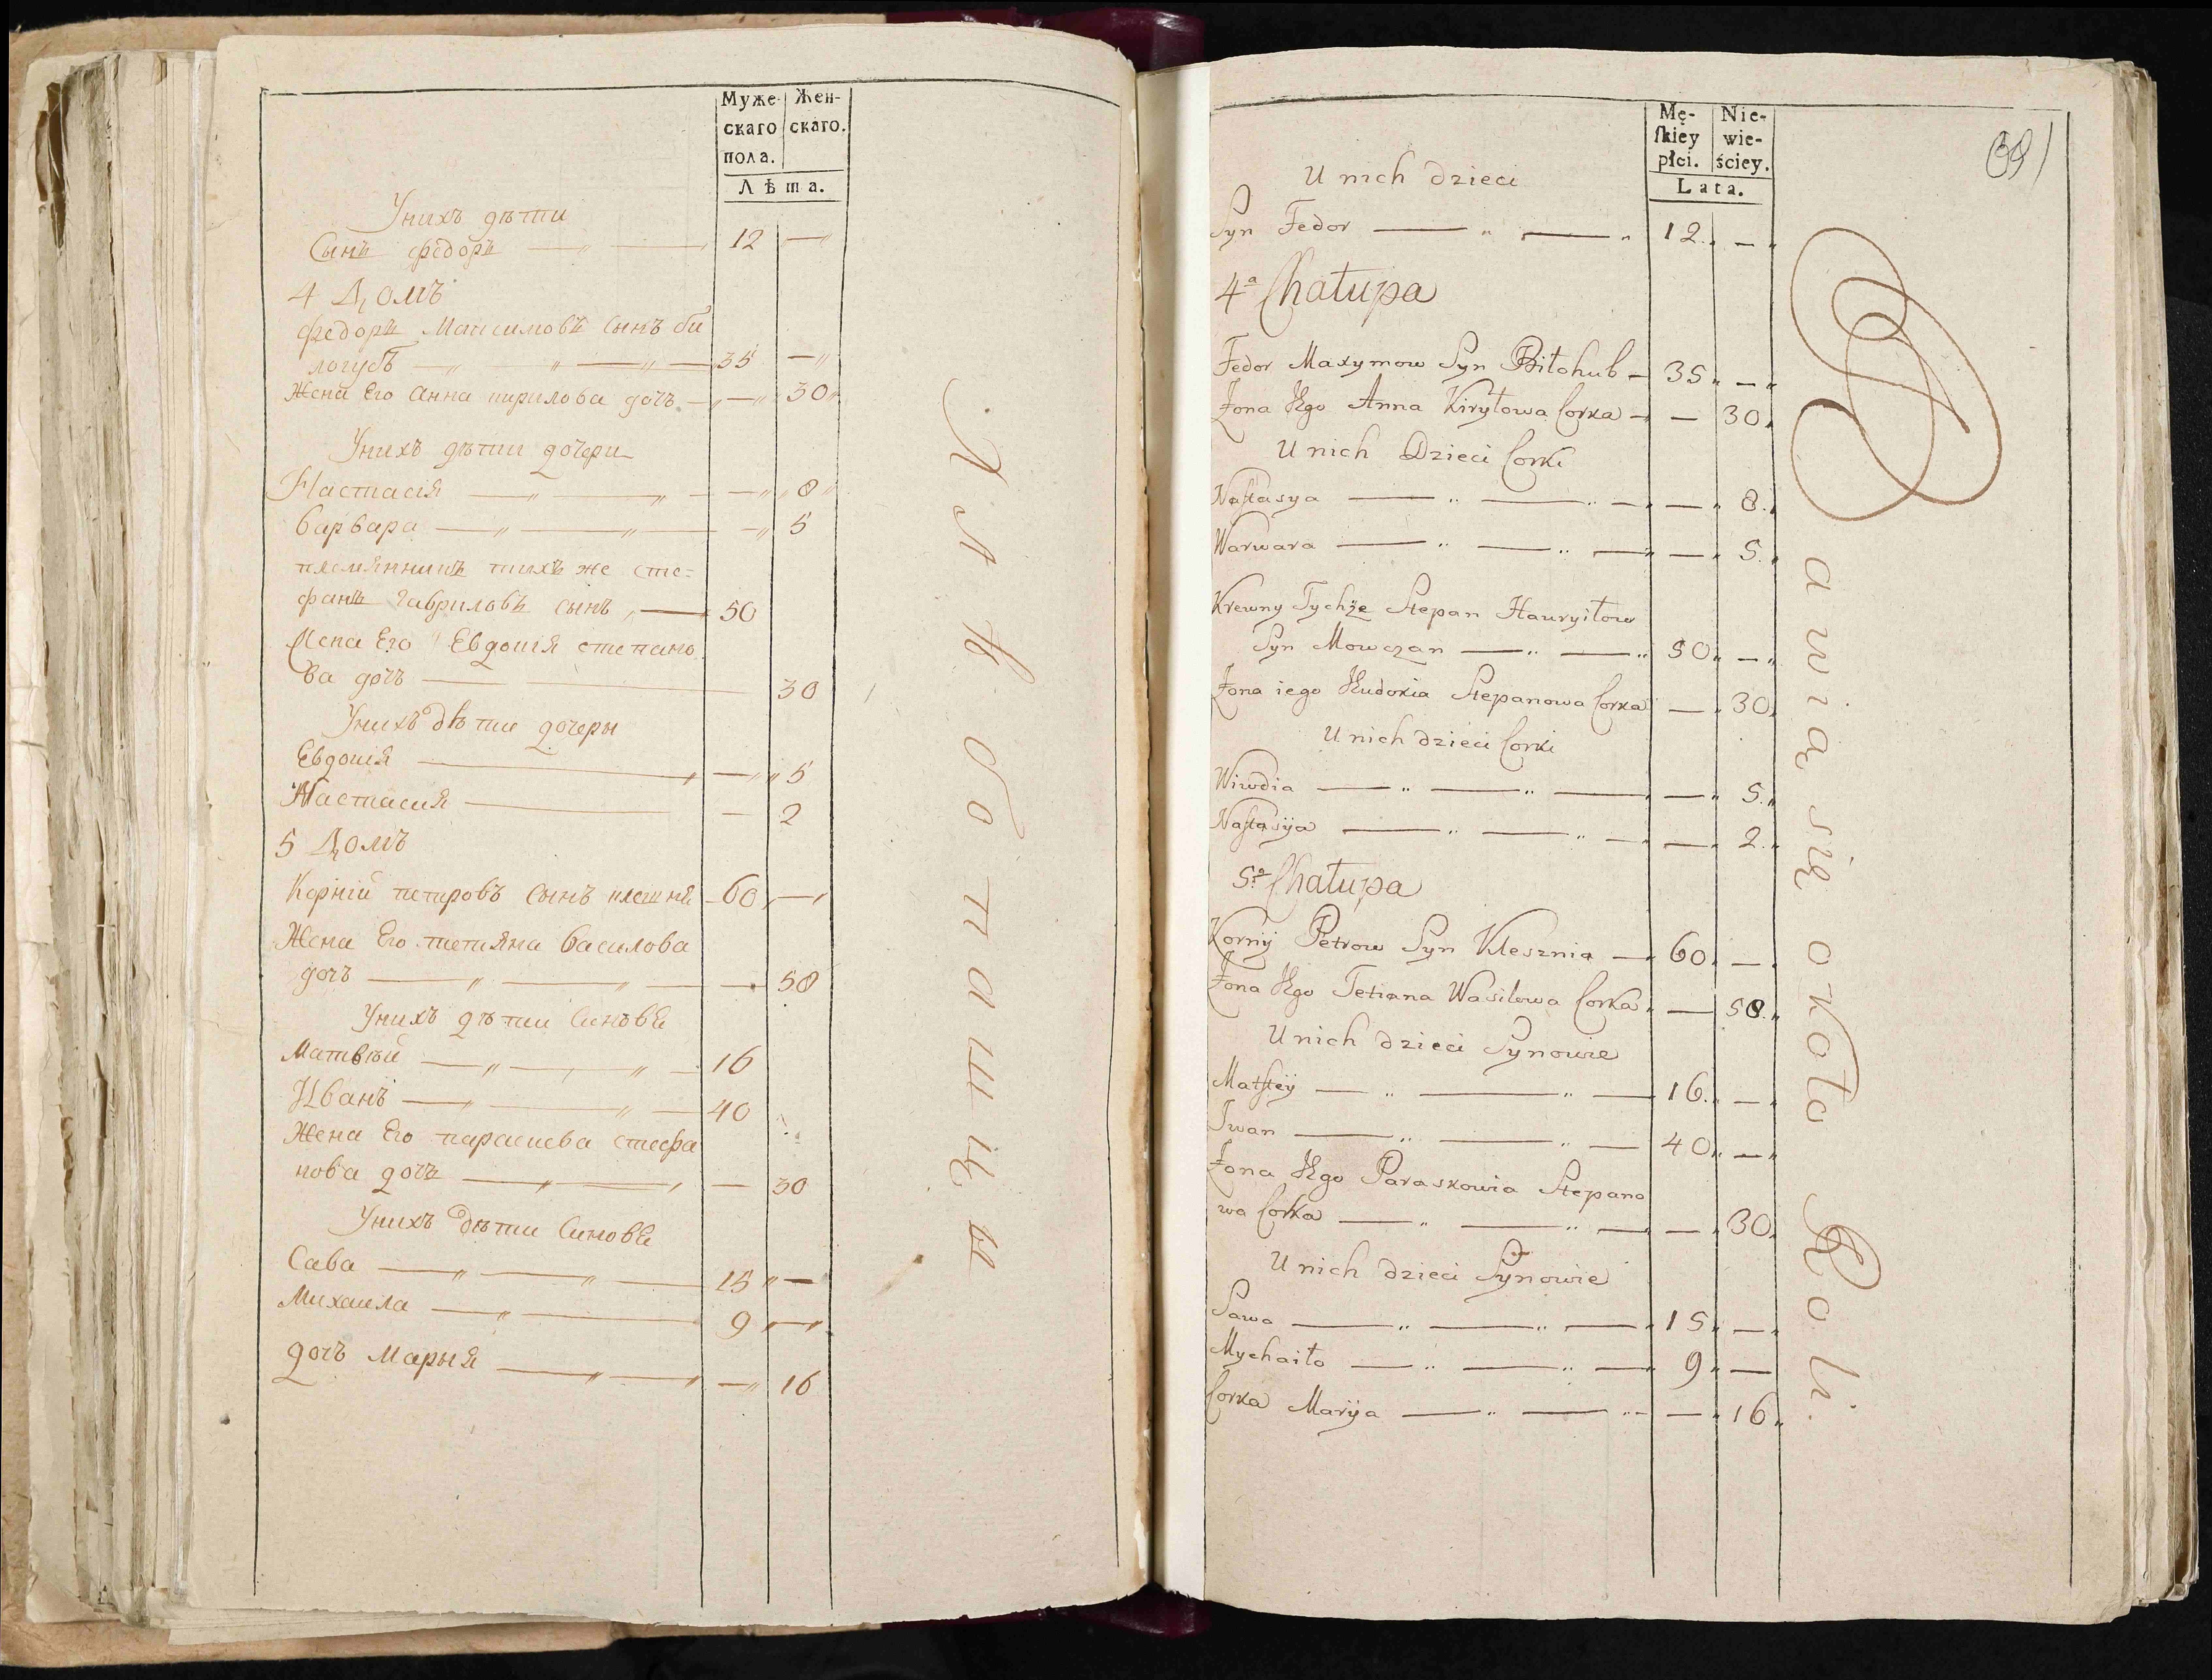 Муже-
скаго
пола.
Жен-
скаго.
Лѣта.
Унихъ дѣти
Сынъ федоръ — " — " 12 — "
4 Домъ
федоръ Максимовъ Сынъ би
логубъ — " — " — " — 35 — "
Жена Его Анна кирилова дочъ — " — " 30 "
Унихъ дѣти дочери
Настасія — " — " — — " 8 "
Варвара — " — " — " 5
племянникъ тихъ же сте=
фанъ Гавриловъ Сынъ, — 50
Жена Его Евдокія степано
ва дочъ — 30
Унихъ дѣти дочеры
Евдокія — " — " 5
Настасия — — 2
5 Домъ
Корній петровъ Сынъ клешня — 60 " — "
Жена Его тетяна василова
дочъ — " — " — — 58
Унихъ дѣти Синовя
Матвѣй — " — " — 16
Иванъ — " — " — 40
Жена Его параскева стефа
нова дочъ — " — " — 30
Унихъ дѣти Синовя
Сава — " — " — 15 " —
Михаила — " — 9 " — "
дочъ Марыя — " — " — " 16
Хлѣбопашцы
Mę-
ſkiey
płci.
Nie-
wie-
ściey.
Lata.
U nich dzieci
Syn Fedor — " — " 12 " — "
4ª Chałupa
Fedor Maxymow Syn Biłohub — 35 " — "
Żona Jego Anna Kiryłowa Corka — — 30 "
U nich Dzieci Corki
Naſtasya — " — " — " — " 8 "
Warwara — " — " — " — " 5 "
Krewny Tychże Stepan Hauryiłow
Syn Mowczan — " — " 50 " — "
Żona iego Eudoxia Stepanowa Corka — " 30 "
U nich dzieci Corki
Wiwdia — " — " — " — " 5 "
Naſtasÿa — " — " — " — " 2 "
5ª Chałupa
Kornÿ Petrow Syn Klesznia — " 60 " — "
Żona Jego Tetiana Wasilowa Corka " — " 58 "
U nich dzieci Synowie
Matfieÿ — " — " — 16 " — "
Iwan — " — " — 40 " — "
Żona Jego Paraskowia Stepano
wa Corka — " — " — " — " 30 "
U nich dzieci Synowie
Sawa — " — " — " 15 " — "
Mychaiło — " — " — " 9 " —
Corka Marÿa — " — " — — " 16 "
Bawią się około Roli.